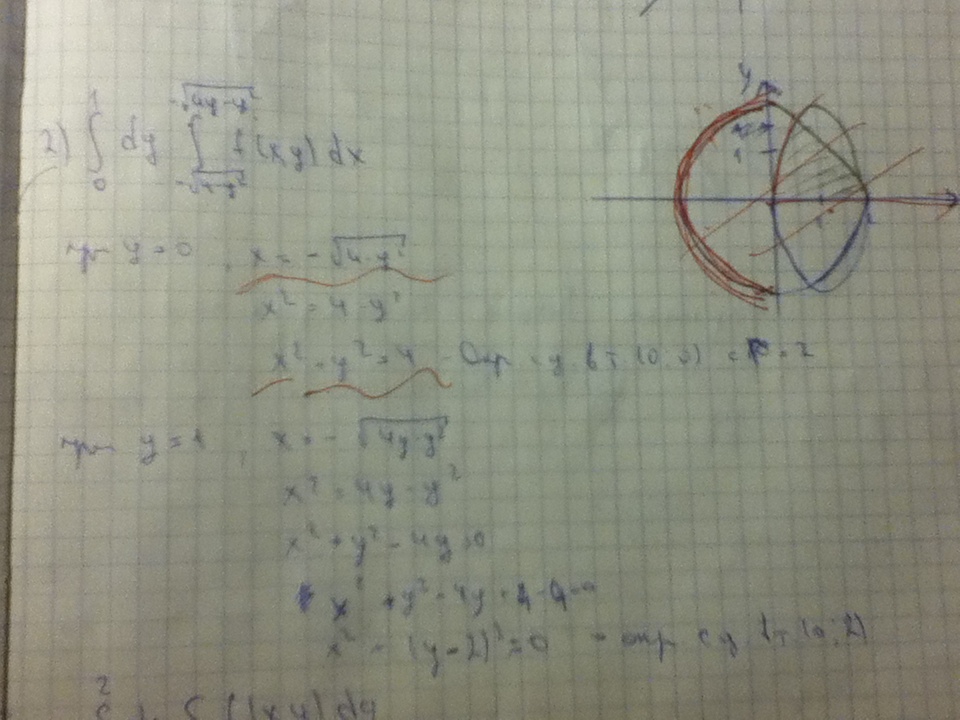 2) ∫₀¹ dy ∫_{-√(4-y²)}^{-√(4y-y²)} f(x y) dx
y
1
при y = 0, x = -√(4-y²)
x² = 4 - y²
x² - y² = 4 - Окр с ц. в т (0; 0) r = 2
при y = 1, x = -√(4y-y²)
x² = 4y - y²
x² + y² - 4y = 0
x² + y² - 4y + 4 - 4 = 0
x² - (y - 2)² = 0 - окр с ц. в т (0; 2)
2
f(x y) dy